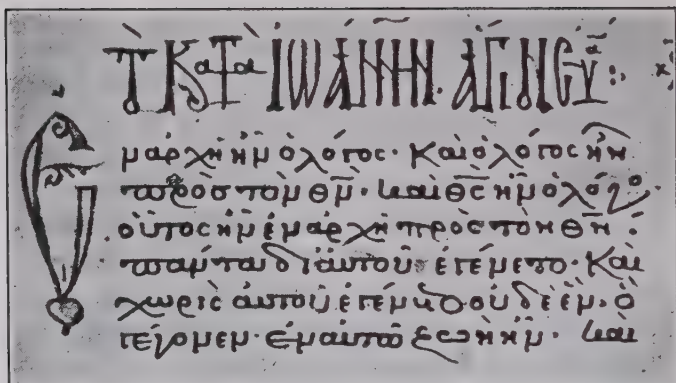 Τὸ ΚαΤὰ ἸΩΆΝΝΗΝ. ἍΓΙΟΝ ΕΥα:
Ἐν ἀρχῆ ἦν ὁ λόγος· Καὶ ὁ λόγος ἦν
πρὸς τὸν θ̅ν̅· καὶ θ̅ς̅ ἦν ὁ λόγο
οὗτος ἦν ἐν ἀρχῆ πρὸς τὸν θ̅ν̅·
πάντα δι αὐτοῦ ἐγένετο· Καὶ
χωρὶς αὐτοῦ ἐγένετο οὐδὲ ἕν· ὃ
γέγονεν· ἐν αὐτῶ ζωὴ ἦν· καὶ